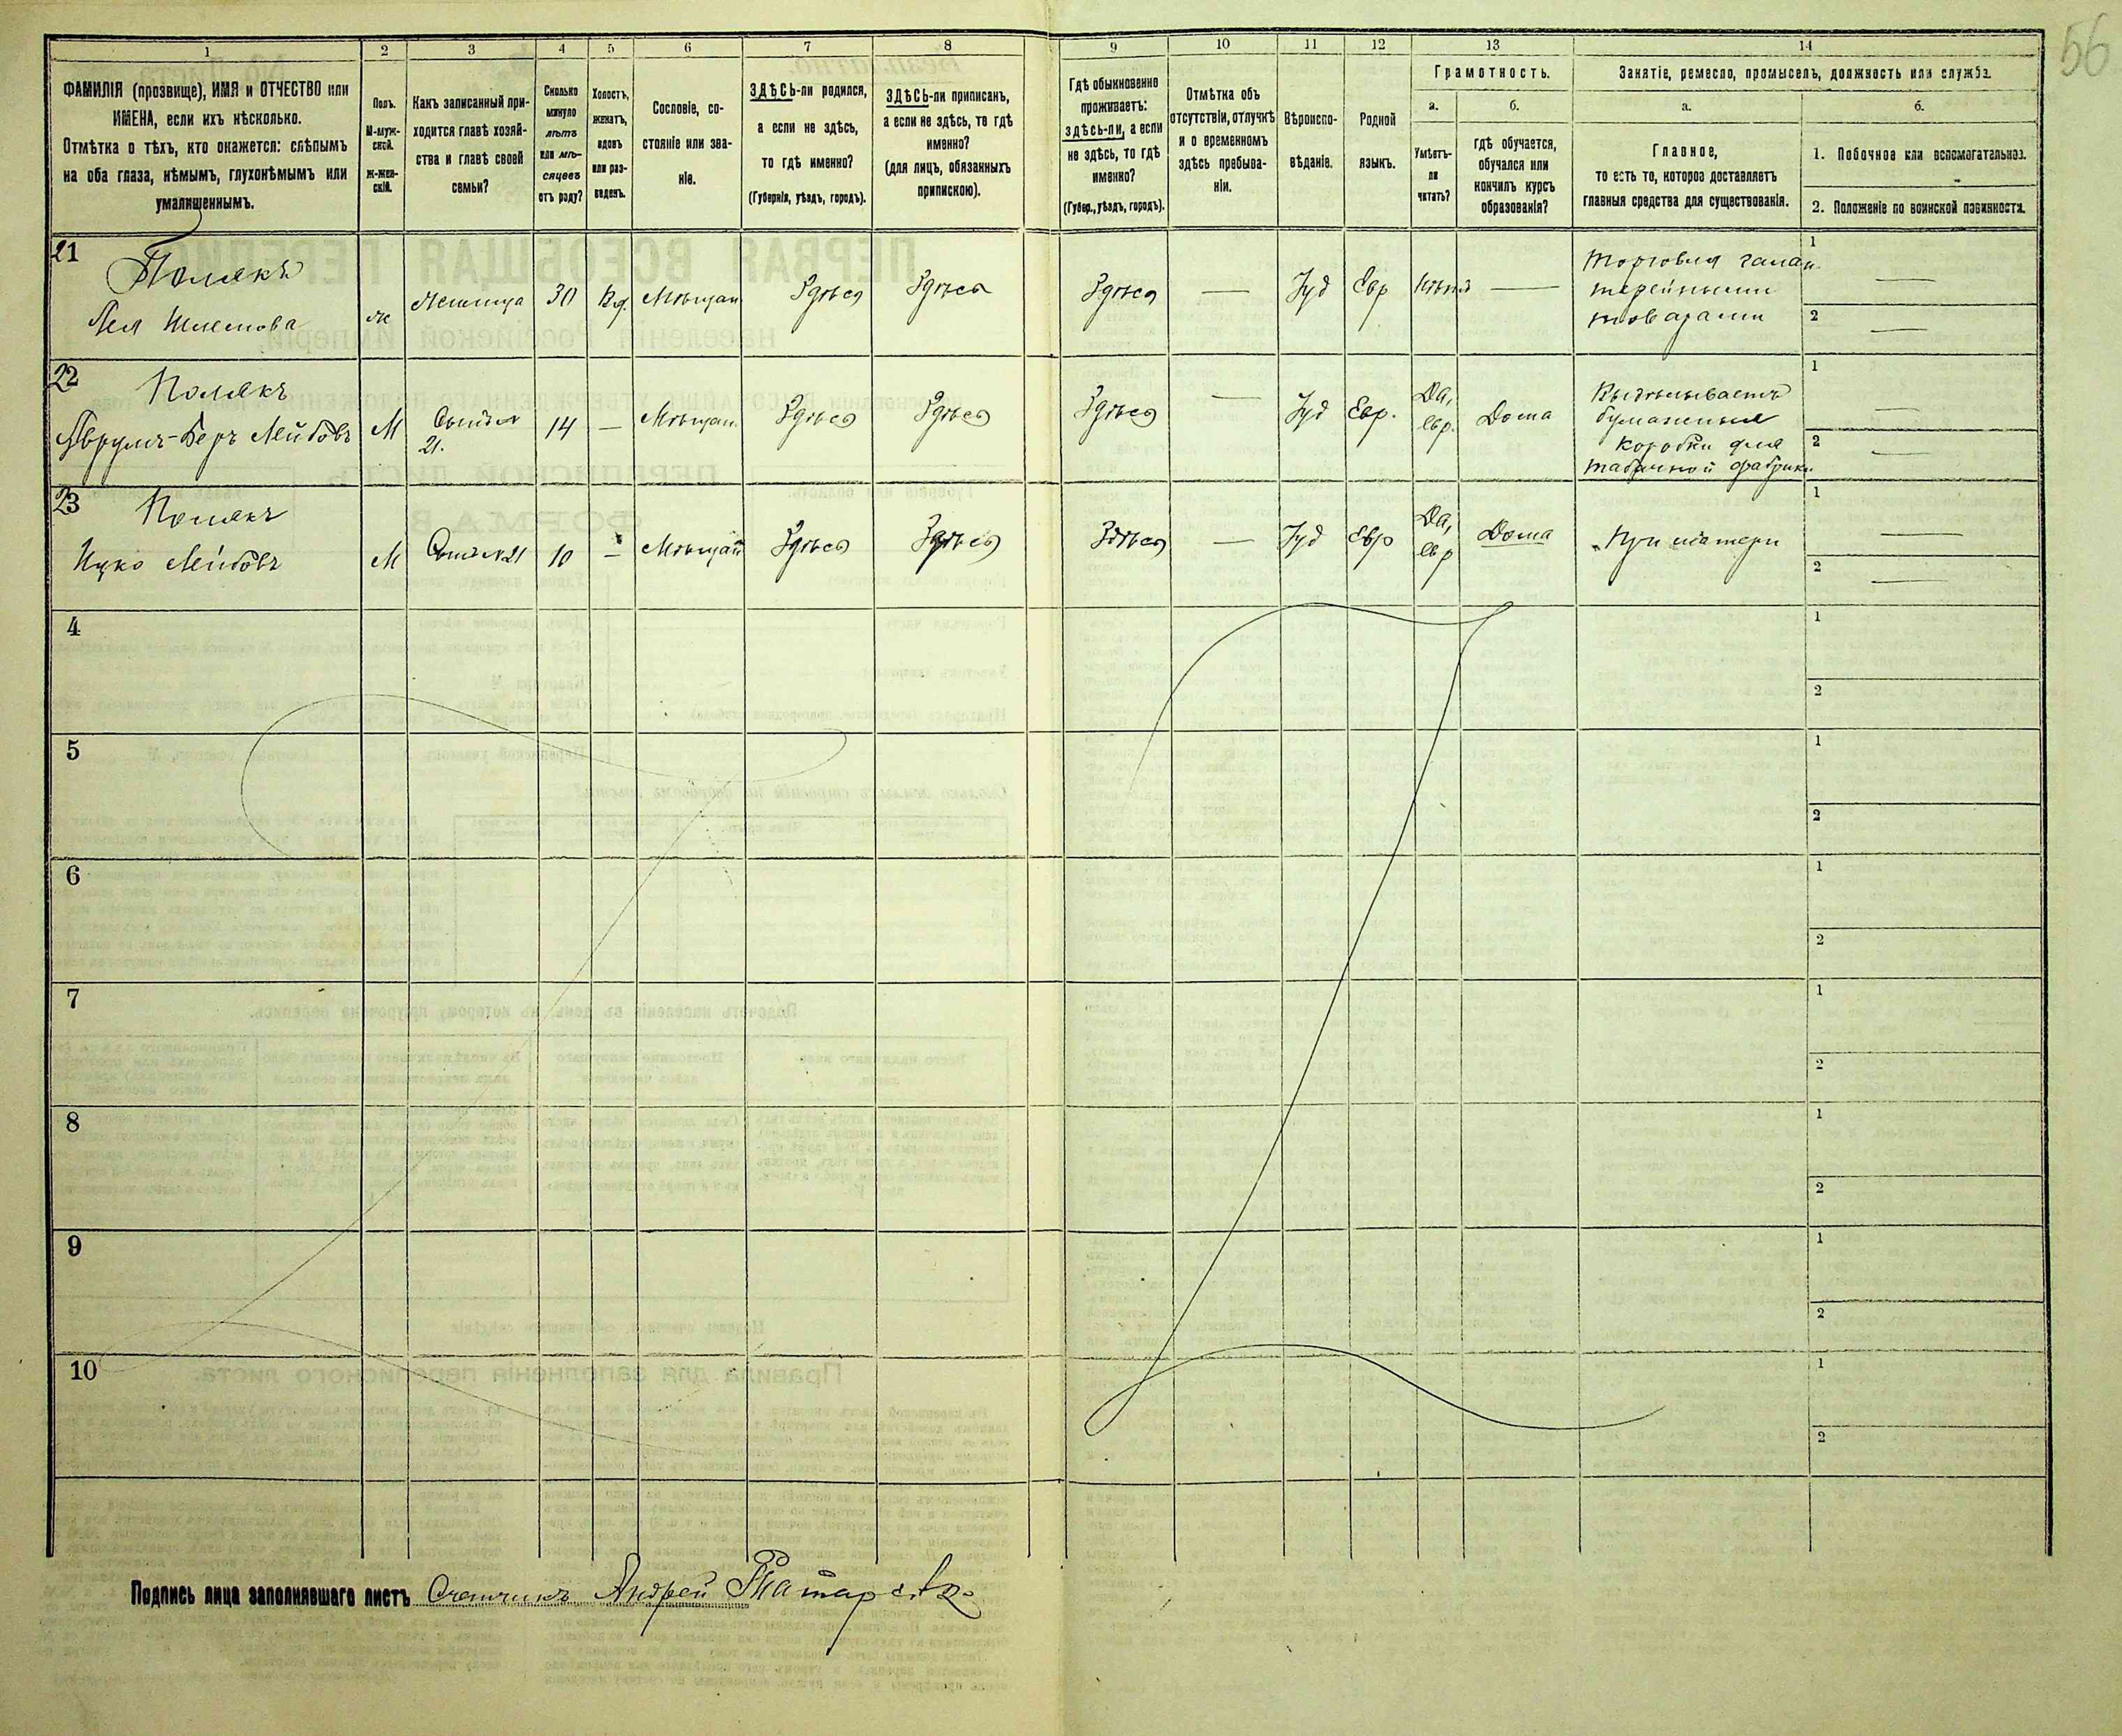 56
1 2 3 4 5 6 7 8 9 10 11 12 13 14
ФАМИЛІЯ (прозвище), ИМЯ и ОТЧЕСТВО или
ИМЕНА, если ихъ нѣсколько.
Отмѣтка о тѣхъ, кто окажется: слѣпымъ
на оба глаза, нѣмымъ, глухонѣмымъ или
умалишеннымъ.
Полъ.
М-муж-
ской.
Ж-жен-
скій.
Какъ записанный при-
ходится главѣ хозяй-
ства и главѣ своей
семьи?
Сколько
минуло
лѣтъ
или мѣ-
сяцевъ
отъ роду?
Холостъ,
женатъ,
вдовъ
или раз-
веденъ.
Сословіе, со-
стояніе или зва-
ніе.
ЗДѢСЬ-ли родился,
а если не здѣсь,
то гдѣ именно?
(Губернія, уѣздъ, городъ).
ЗДѢСЬ-ли приписанъ,
а если не здѣсь, то гдѣ
именно?
(для лицъ, обязанныхъ
припискою).
Гдѣ обыкновенно
проживаетъ:
здѣсь-ли, а если
не здѣсь, то гдѣ
именно?
(Губер., уѣздъ, городъ).
Отмѣтка объ
отсутствіи, отлучкѣ
и о временномъ
здѣсь пребыва-
ніи.
Вѣроиспо-
вѣданіе.
Родной
языкъ.
Грамотность.
а.
Умѣетъ-
ли
читать?
б.
гдѣ обучается,
обучался или
кончилъ курсъ
образованія?
Занятіе, ремесло, промыселъ, должность или служба.
а.
Главное,
то есть то, которое доставляетъ
главныя средства для существованія.
б.
1. Побочное или вспомогательное.
2. Положеніе по воинской повинности.
21
Полякъ
ж 30 Вд. Мѣщан Здѣсь Здѣсь Здѣсь — Іуд Евр —
Торговля галан-
терейными
товарами
1 —
2 —
22
Полякъ
Аврумъ-Беръ Лейбовъ
М
21.
14 — Мѣщан. Здѣсь Здѣсь Здѣсь — Іуд Евр.
Да,
евр.
Дома
Выдѣлываетъ
бумажныя
коробки для
табачной фабрики
1 —
2 —
23
Полякъ
Ицко Лейбовъ
М Сынъ №21 10 — Мѣщан Здѣсь Здѣсь Здѣсь — Іуд Евр
Да,
евр
Дома
При матери
1 —
2 —
4
1
2
5
1
2
6
1
2
7
1
2
8
1
2
9
1
2
10
1
2
Подпись лица заполнявшаго листъ Счетчикъ Андрей